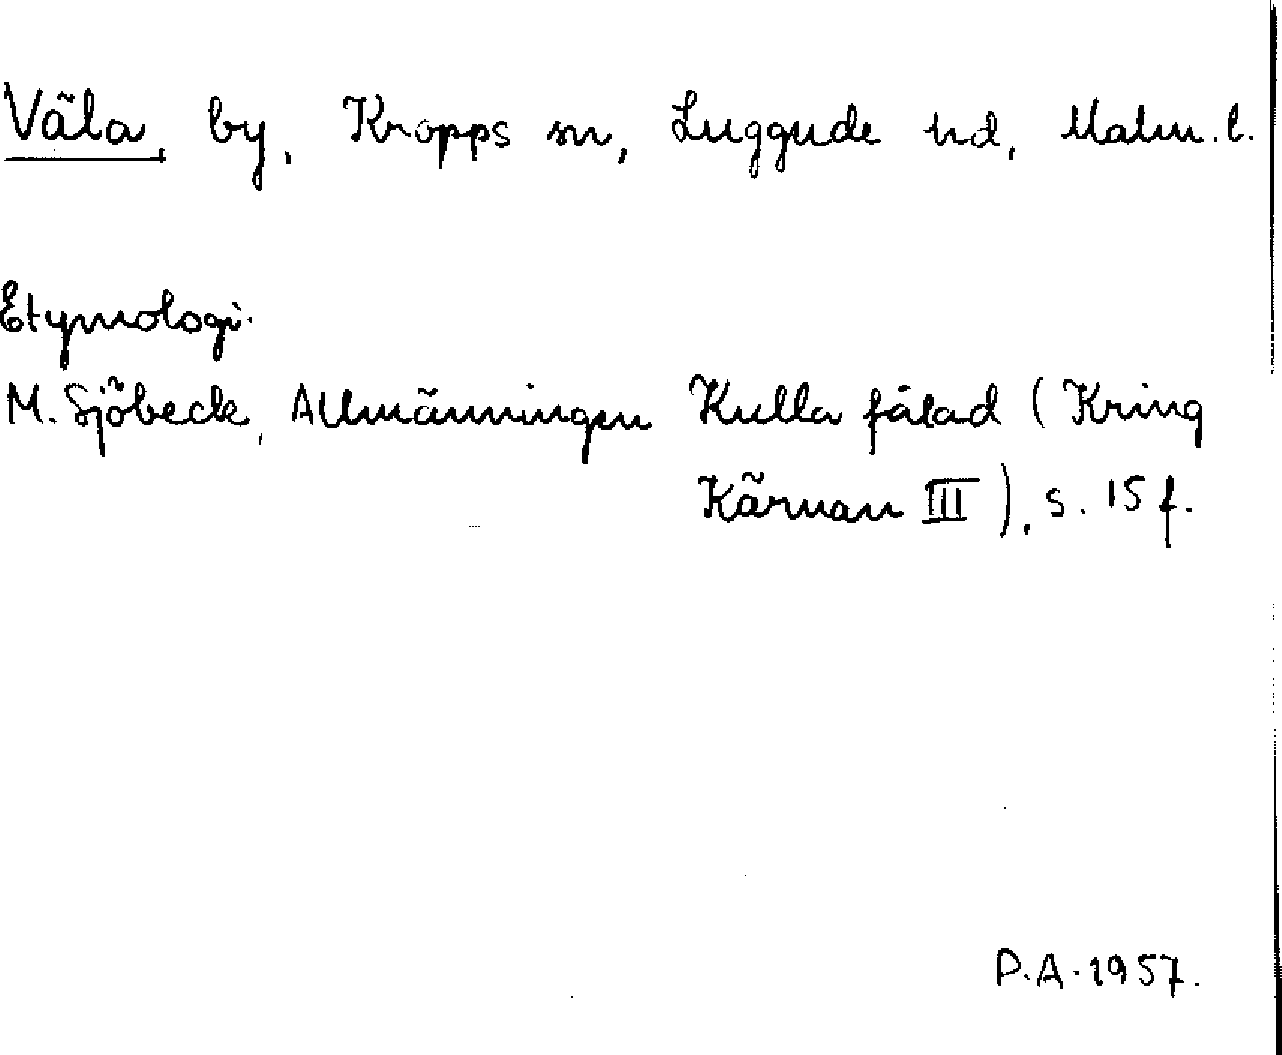 Väla, by, Kropps sn, Luggude hd, Malm. l.
Etymologi.
M. Sjöbeck, Allmänningen Kulla fälad (Kring
Kärnan III), s. 15 f.
P.A. 1957.